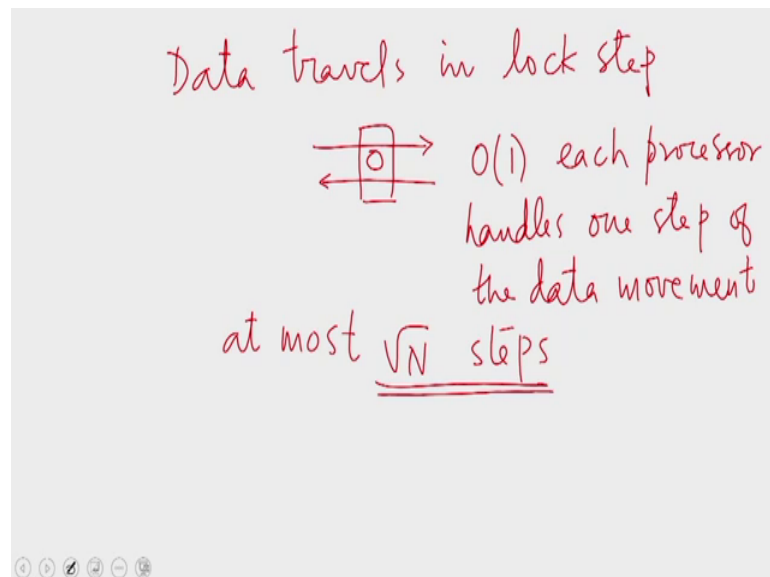 Data travels in lock step
O
O(1) each processor
handles one step of
the data movement
at most √N steps